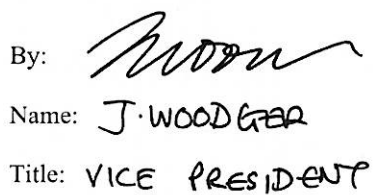 By:
Name: J. WOODGER
Title: VICE PRESIDENT